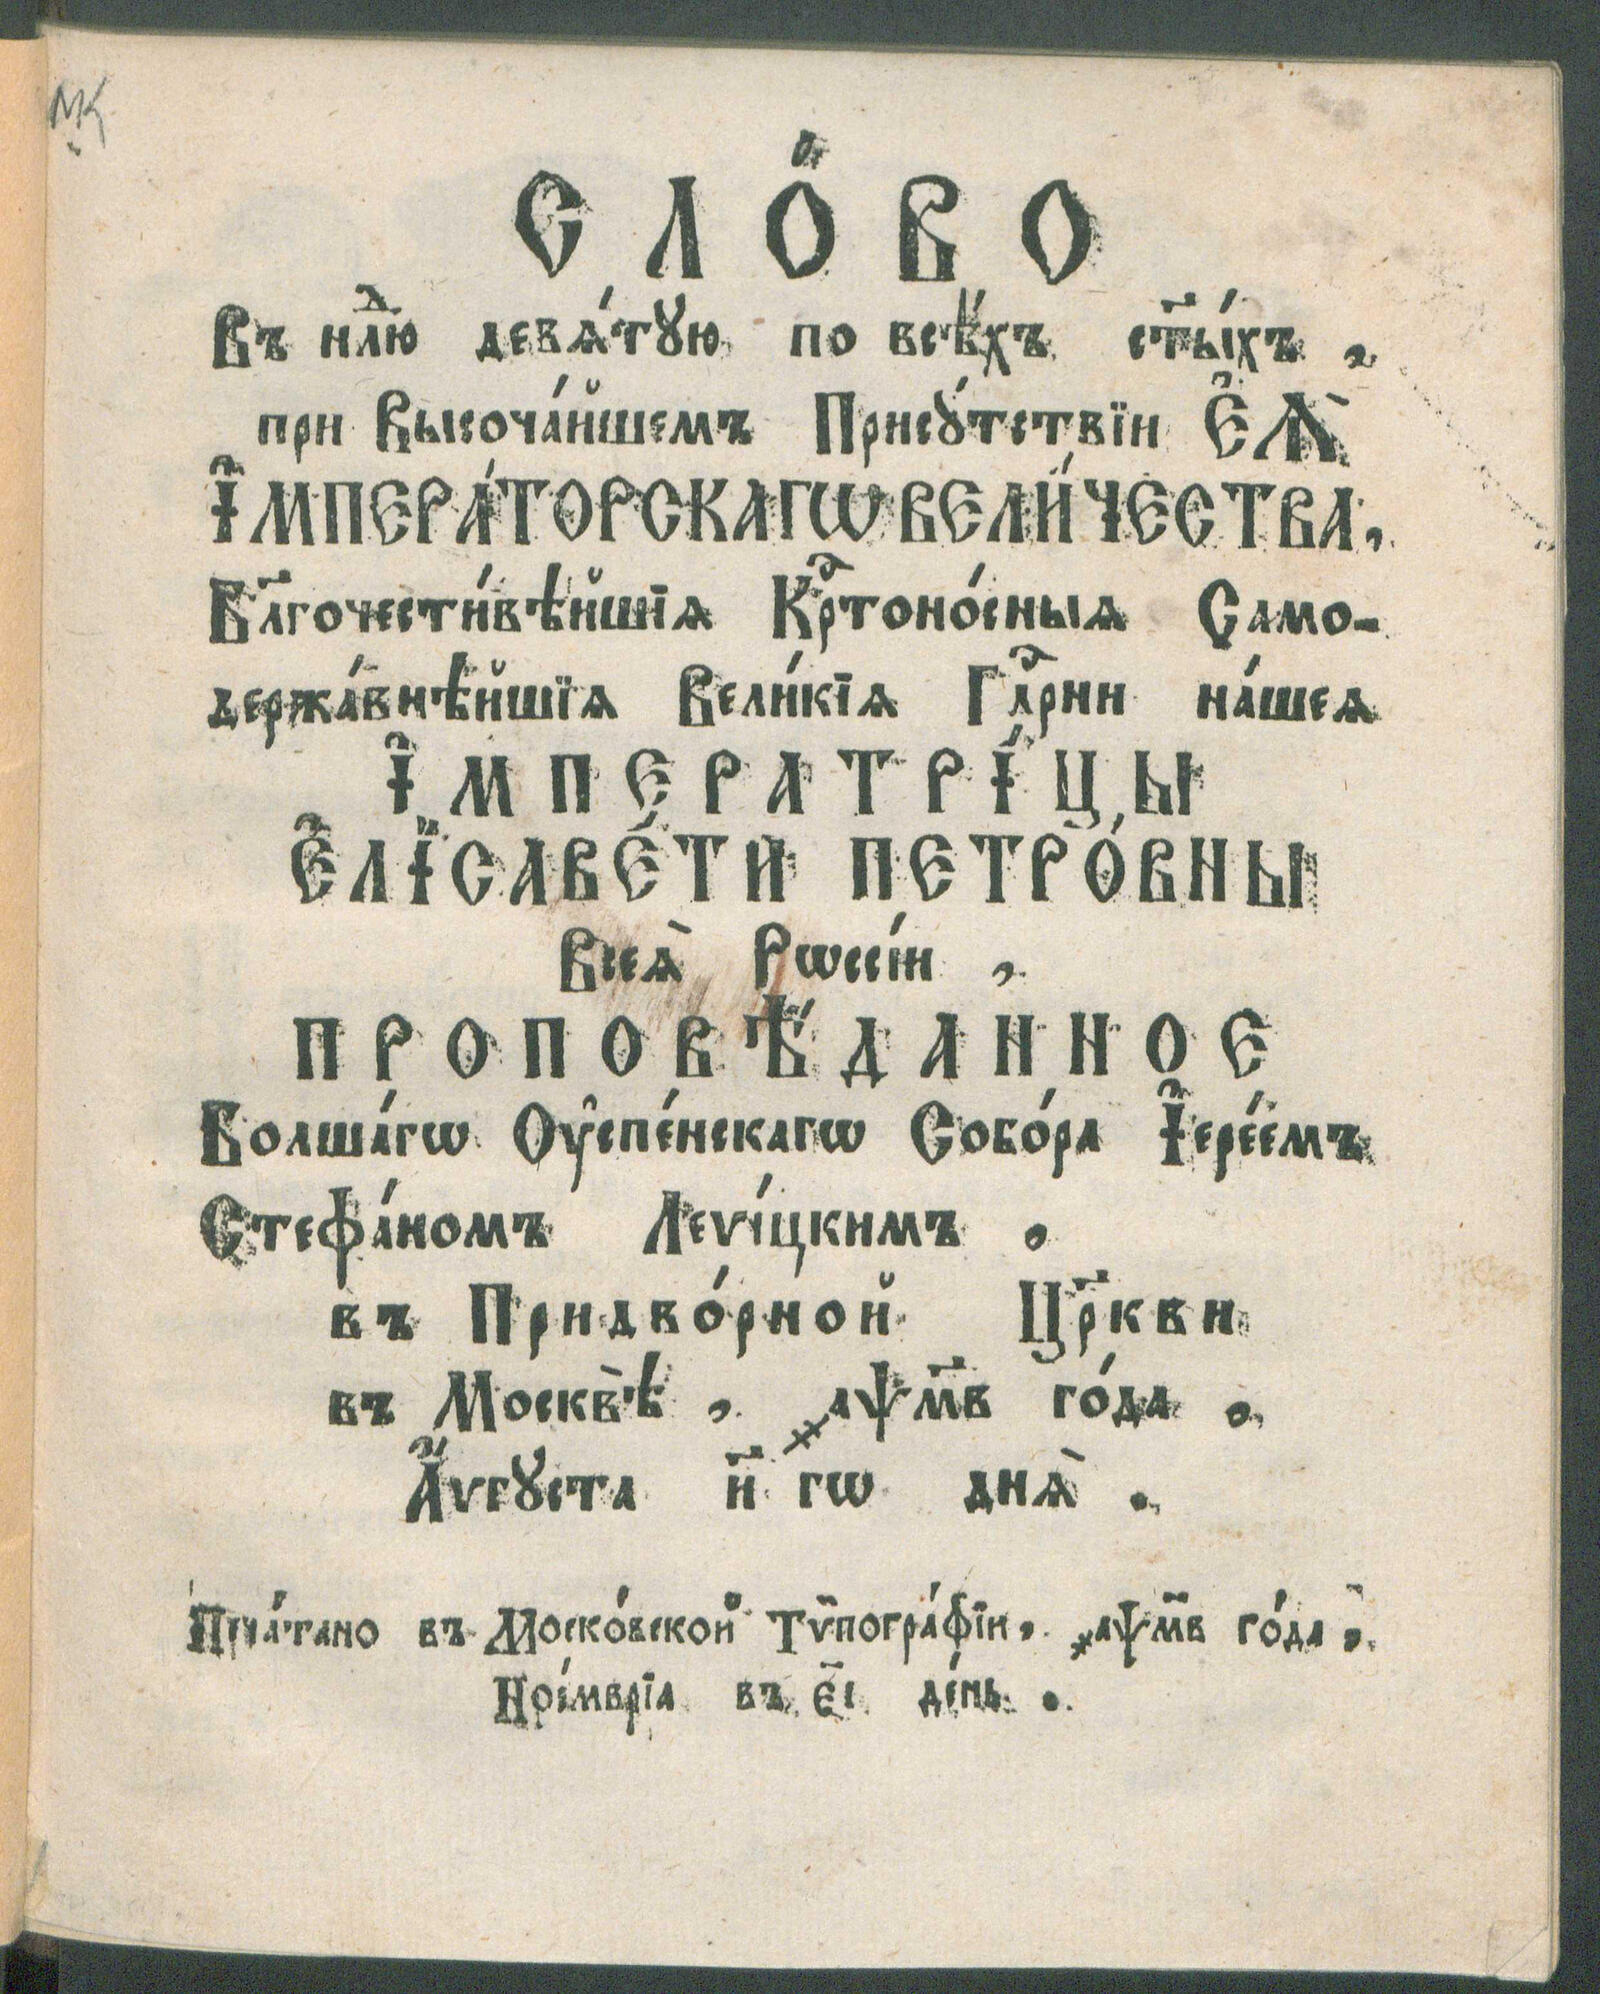 СЛО́ВО
Въ нлⷣю девѧ́тꙋю по всѣ́хъ ст҃ы́хъ ,
при Высоча́йшемъ Присꙋ́тствїи Є҆Ѧ̀
І҆МПЕРА́ТОРСКАГѠ ВЕЛИ́ЧЕСТВА ,
Бл҃гочести́вѣйшїѧ Крⷭ҇тоно́сныѧ Само-
держа́внѣйшїѧ Вели́кїѧ Гдⷭ҇рни на́шеѧ
І҆МПЕРАТРІ́ЦЫ
Є҆ЛІСАВЕ́ТИ ПЕТРО́ВНЫ
Всеѧ̀ Рѡссі́и ,
ПРОПОВѢ́ДАННОЕ
Болша́гѡ Оу҆спе́нскагѡ Собо́ра І҆ере́емъ
Стефа́номъ Леѵі́цкимъ ,
въ Придво́рной Цр҃кви
въ Москвѣ̀ , ҂аѱм҃в го́да ,
А҆́ѵгꙋста и҃ гѡ днѧ̀ .
Печа́тано въ Моско́вской Тѷпогра́фїи , ҂аѱм҃в го́да ,
Ное́мврїа въ є҃і де́нь .